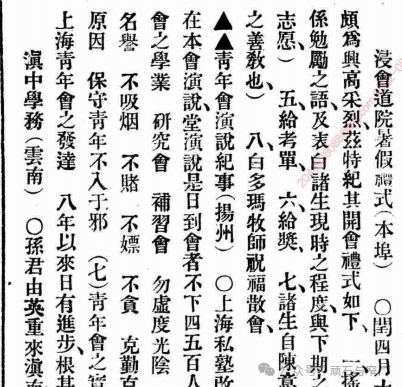 浸會道院暑假禮式(本埠) 〇閏四月十
頗爲興高采烈茲特紀其開會禮式如下 一搖
係勉勵之語及表白諸生現時之程度與下期之
志愿) 五給考單 六給奬 七諸生自陳意
之善敎也) 八白多瑪牧師祝福散會
▲▲靑年會演說紀事(揚州) 〇上海私塾改
在本會演說堂演說是日到會者不下四五百人
會之學業 硏究會 補習會 勿虛度光陰
名譽 不吸烟 不賭 不嫖 不貪 克勤克
原因 保守靑年不入于邪 (七)靑年會之實
上海靑年會之發達 八年以來日有進步根基
滇中學務(雲南) 〇孫君由英重來滇南
頑石与窄门